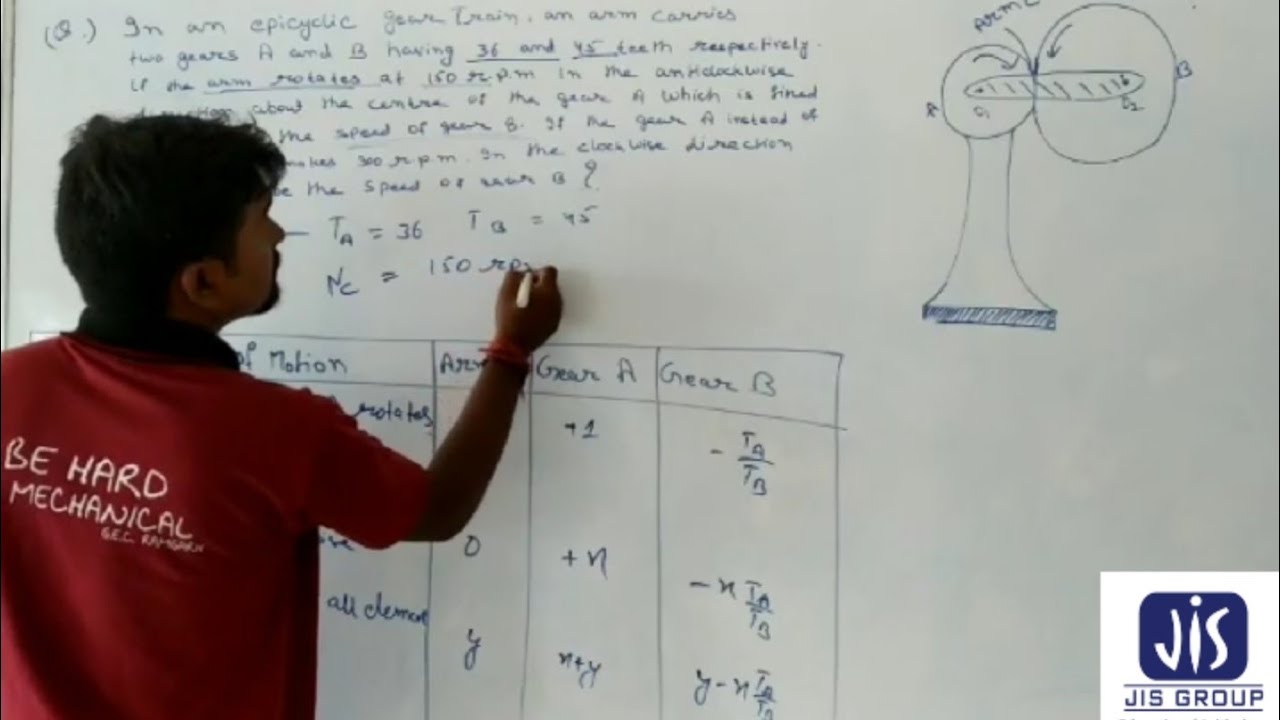 (Q.) In an epicyclic gear train, an arm carries
two gears A and B having 36 and 45 teeth respectively.
If the arm rotates at 150 r.p.m in the anticlockwise
about the centre of the gear A which is fixed
the speed of gear B. If the gear A instead of
makes 300 r.p.m. In the clockwise direction
the speed of gear B ?
T_A = 36 T_B = 45
N_C = 150 rpm
of Motion
Gear A
Gear B
rotates
+1
- T_A/T_B
0
+x
- x T_A/T_B
all element
y
x+y
y - x T_A/T_B
ARM C
A
B
BE HARD
MECHANICAL
G.E.C. RAMGARH
JIS
JIS GROUP